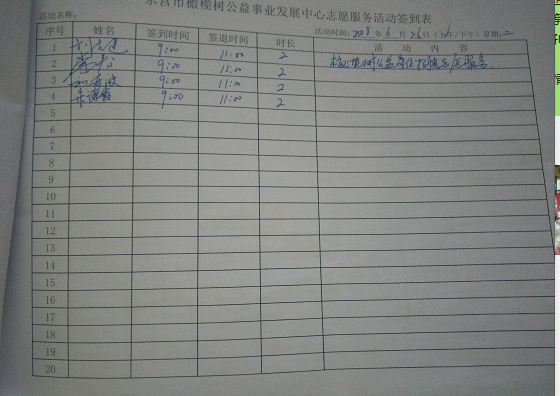 东营市橄榄树公益事业发展中心志愿服务活动签到表
活动名称： 活动时间：2018年6月26日（上午/下午）星期：二
序号 姓名 签到时间 签退时间 时长 活动内容
1 9:00 11:00 2 橄榄树公益岗位服务
2 9:00 11:00 2
3 9:00 11:00 2
4 9:00 11:00 2
5
6
7
8
9
10
11
12
13
14
15
16
17
18
19
20